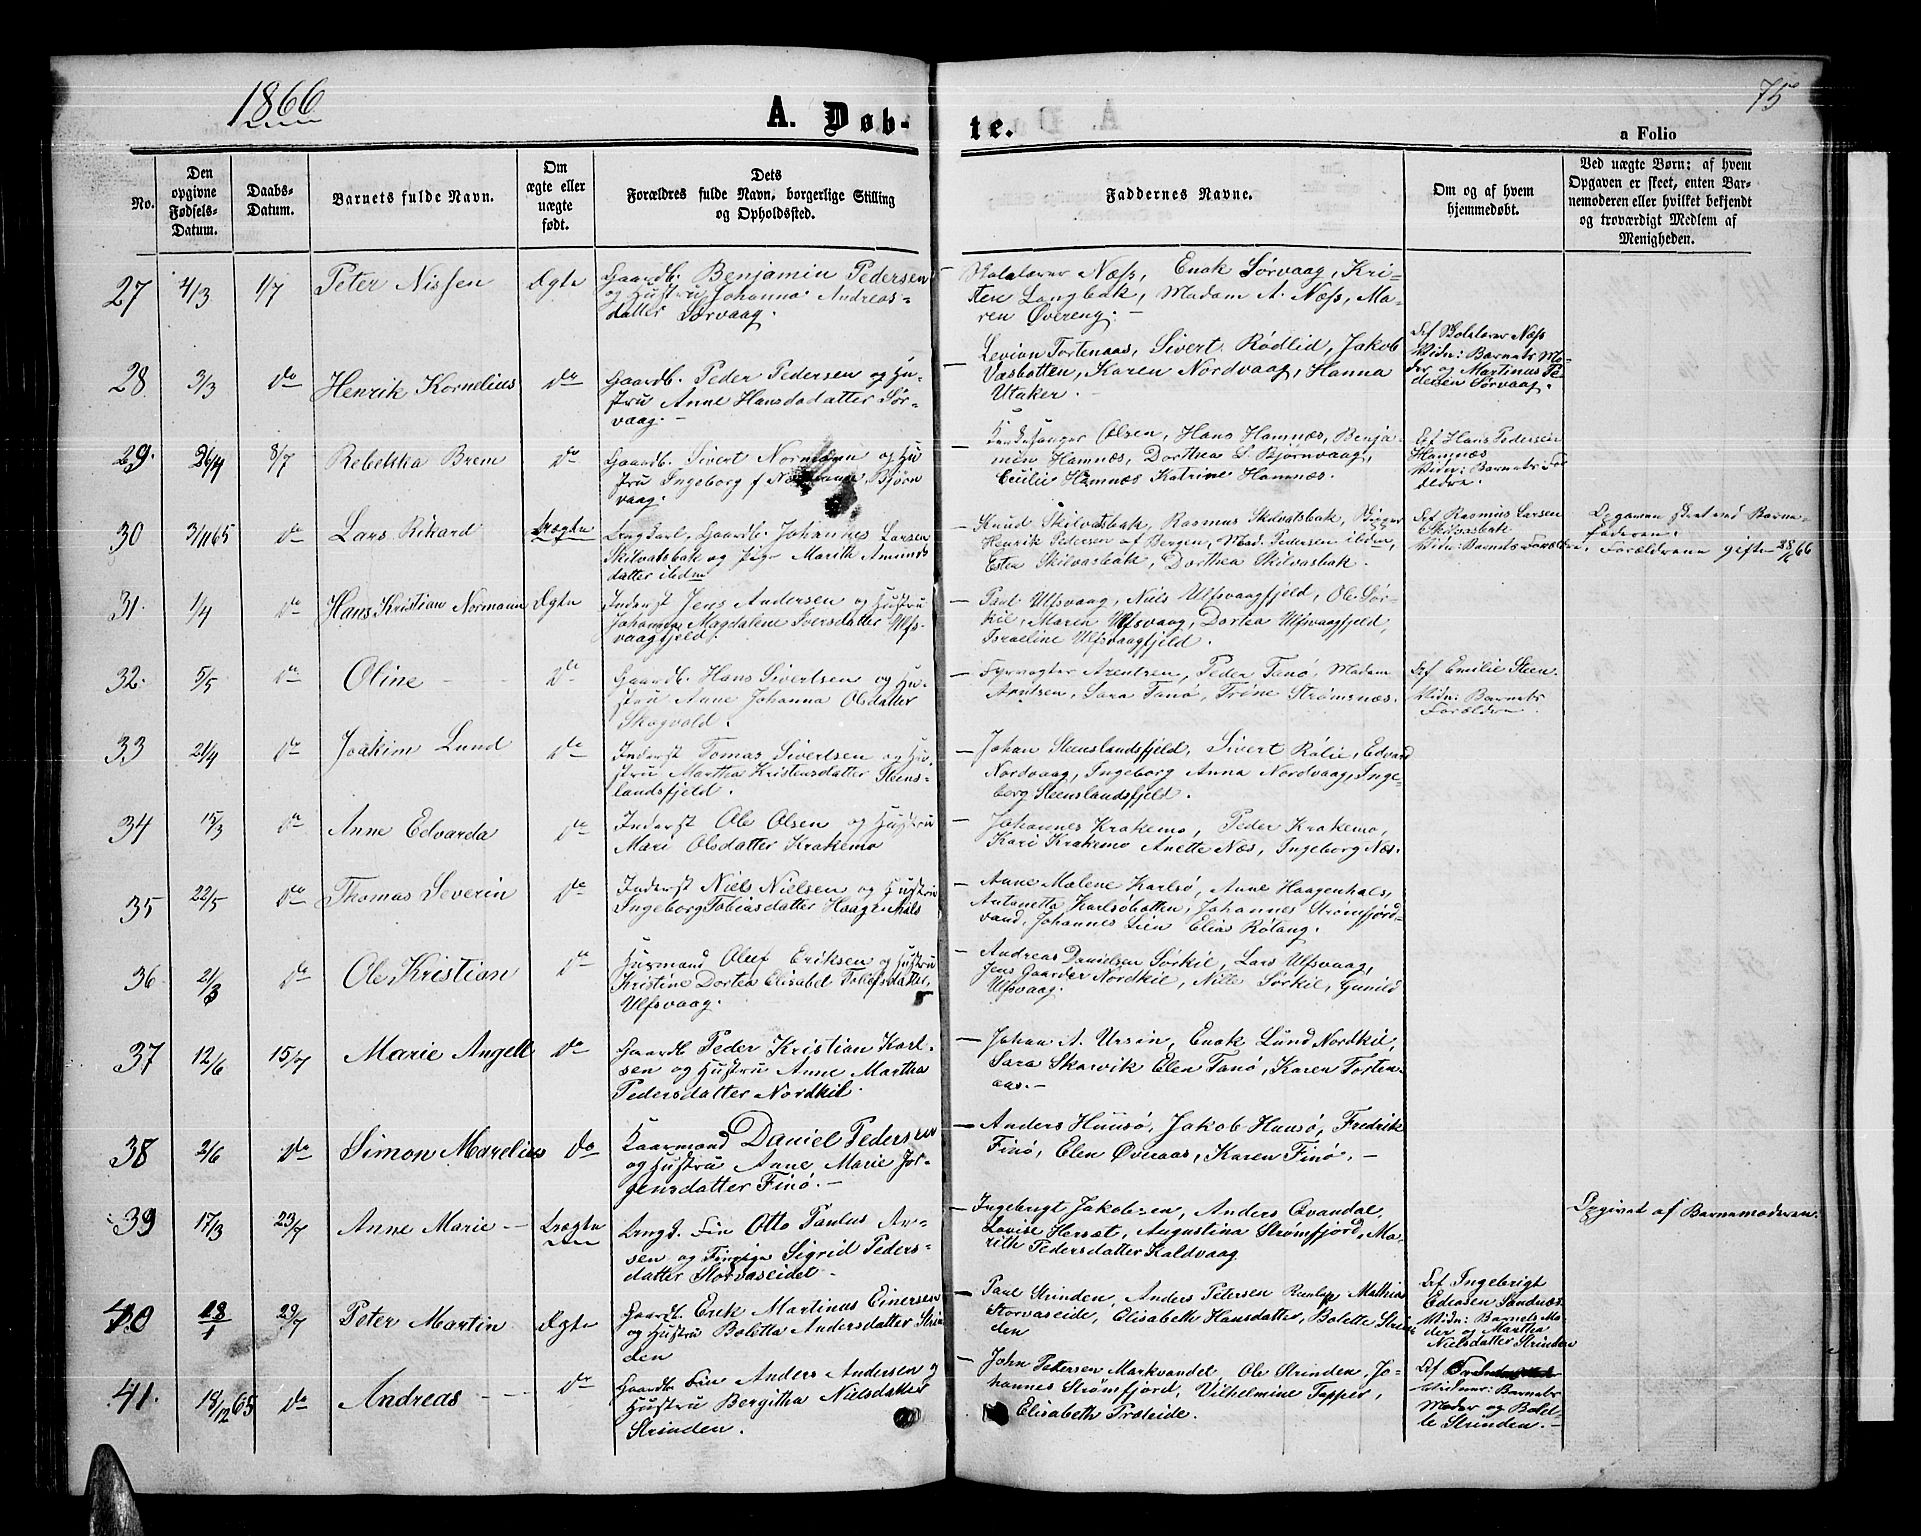 1866
75
A. Døb-
te.
a Folio
No.
Den opgivne Fødsels-Datum.
Daabs-Datum.
Barnets fulde Navn.
Om ægte eller uægte født.
Dets Forældres fulde Navn, borgerlige Stilling og Opholdssted.
Faddernes Navne.
Om og af hvem hjemmedøbt.
Ved uægte Børn: af hvem Opgaven er skeet, enten Barnemoderen eller hvilket bekjendt og troværdigt Medlem af Menigheden.
27 4/3 1/7 Peter Nissen Ægte Gaardb. Benjamin Pedersen
og Hustru Johanna Andreas-
datter Sørvaag.
– Skolelærer Næss, Enok Sørvaag, Kri-
sten Langbak, Madam A. Næss, Ma-
ren Øvereng. –
28 3/3 do Henrik Kornelius do Gaardb. Peder Pedersen og Hu-
stru Anne Hansdadatter Sør-
vaag. –
– Levion Tortenaas, Sivert Rødlid, Jakob
Vasbotten, Karen Nordvaag, Hanna
Utaker.
Af Skolelærer Næss
Vidn: Barnets Mo-
der og Martinus Pe-
dersen Sørvaag.
29. 26/4 8/7 Rebekka Brem do Gaardb. Sivert og Hu
stru Ingeborg Bjørn
vaag
– Kirkesanger Olsen, Hans Hamnæs, Benja-
men Hamnæs, Dorthea S. Bjørnvaag,
Cecilie Hamnæs Katrine Hamnæs.
Af Hans Pedersen
Hamnæs
Vidn: Barnets For
ældre.
30 3/11 65 do Lars Rikard Uægte Ungkarl, Gaardb. Johannes Larsen
Skilvatsbak og Pige Marith Amunds
datter ibdm
– Knud Skilvatsbak, Rasmus Skilvatsbak,
Henrik Pedersen af Bergen, Mad. Pedersen ibdm,
Ester Skilvasbak, Dorthea Skilvasbak.
Af Rasmus Larsen
Skilvasbak
Vidn: Barnets Forældre.
Opgaven skeet ved Barne-
faderen.
Forældrene gifte 28/6 66
31. 1/4 do Hans Kristian Normann Ægte Inderst Jens Andersen og Hustru
Johanna Magdalene Iversdatter Ulfs-
vaagfjeld.
– Paul Ulfsvaag, Niels Ulfsvaagfjeld, Ole Sør-
kil, Maren Ulfsvaag, Dortea Ulfsvaagfjeld,
Israeline Ulfsvaagfjeld.
32. 5/5 do Oline – – do Gaardb. Hans Sivertsen og Hu-
stru Anne Johanna Olsdatter
Skogvold.
– Fyrvogter Arentsen, Peder Tanø, Madam
Arntsen, Sara Tanø, Trine Strømsnæs.
Af Emilie Steen.
Vidn: Barnets
Forældre
33 21/4 do Joakim Lund do Inderst Tomas Sivertsen og Hu-
stru Martha Kristensdatter Steens-
landsfjeld.
– Johan Steenslandsfjeld, Sivert Rølie, Edvard
Nordvaag, Ingeborg Anna Nordvaag, Inge-
borg Steenslandsfjeld.
34 15/3 do Anne Edvarda do Inderst Ole Olsen og Hustru
Mari Olsdatter Krakemo
– Johannes Krakemo, Peder Krakemo,
Kari Krakemo Anette Næs, Ingeborg Næs.
35 22/5 do Thomas Severin do Inderst Niels Nielsen og Hustru
Ingeborg Tobiasdatter Haagenhals
– Anne Malene Karlsø, Anne Haagenhals,
Antonetta Karlsøbotten, Johannes Strømfjord-
vand, Johannes Lien Elias Røtang.
36 21/3 do Ole Kristian do Husmand Oluf Eriksen og Hustru
Kristine Dortea Elisabet Tokefsdatter,
Ulfsvaag.
– Andreas Danielsen Sørkil, Lars Ulfsvaag,
Jens Gaarder Nordkil, Nille Sørkil, Gunild
Ulfsvaag.
37 12/6 15/7 Marie Angell do Gaardb Peder Kristian Karl-
sen og Hustru Anne Martha
Pedersdatter Nordkil.
– Johan A. Ursin, Enok Lund Nordkil,
Sara Skarvik Elen Tanø, Karen Torten-
aas. –
38 2/6 do Simon Marelius do Kaarmand Daniel Pedersen
og Hustru Anne Marie Jør-
gensdatter Finø. –
– Anders Hunsø, Jakob Hunsø, Fredrik
Finø, Elen Øveraas, Karen Finø. –
39 17/3 23/7 Anne Marie – Uægte Ungd. Fin Otto Paulus An-
sen og Finpige Sigrid Peders-
datter Storvaseidet –
– Ingebrigt Jakobsen, Anders Qvandal,
Lovise Hersæt, Augustina Strømfjord, Ma-
rith Pedersdatter Kaldvaag
Opgivet af Barnemoderen.
40 18/1 29/7 Peter Martin Ægte Gaardb. Erik Martinus Einersen
og Hustru Boletta Andersdatter Strin-
den
– Paul Strinden, Anders Petersen Mathias
Storvaseide, Elisabeth Hansdatter, Bolette Strin-
den
Af Ingebrigt
Edeasen Sandnæs.
Vidn: Barnets Mo-
der og Martha
Nielsdatter Strinden
41. 18/12 65 do Andreas – – do Gaardb. Fin Anders Andersen og
Hustru Bergitha Nielsdatter
Strinden.
– John Petersen Markvandet, Ole Strinden, Jo-
hannes Strømfjord, Vilhelmine Tapper,
Elisabeth Præteide.
Af
Vidner: Barnets
Moder og Bolet-
te Strinden. –